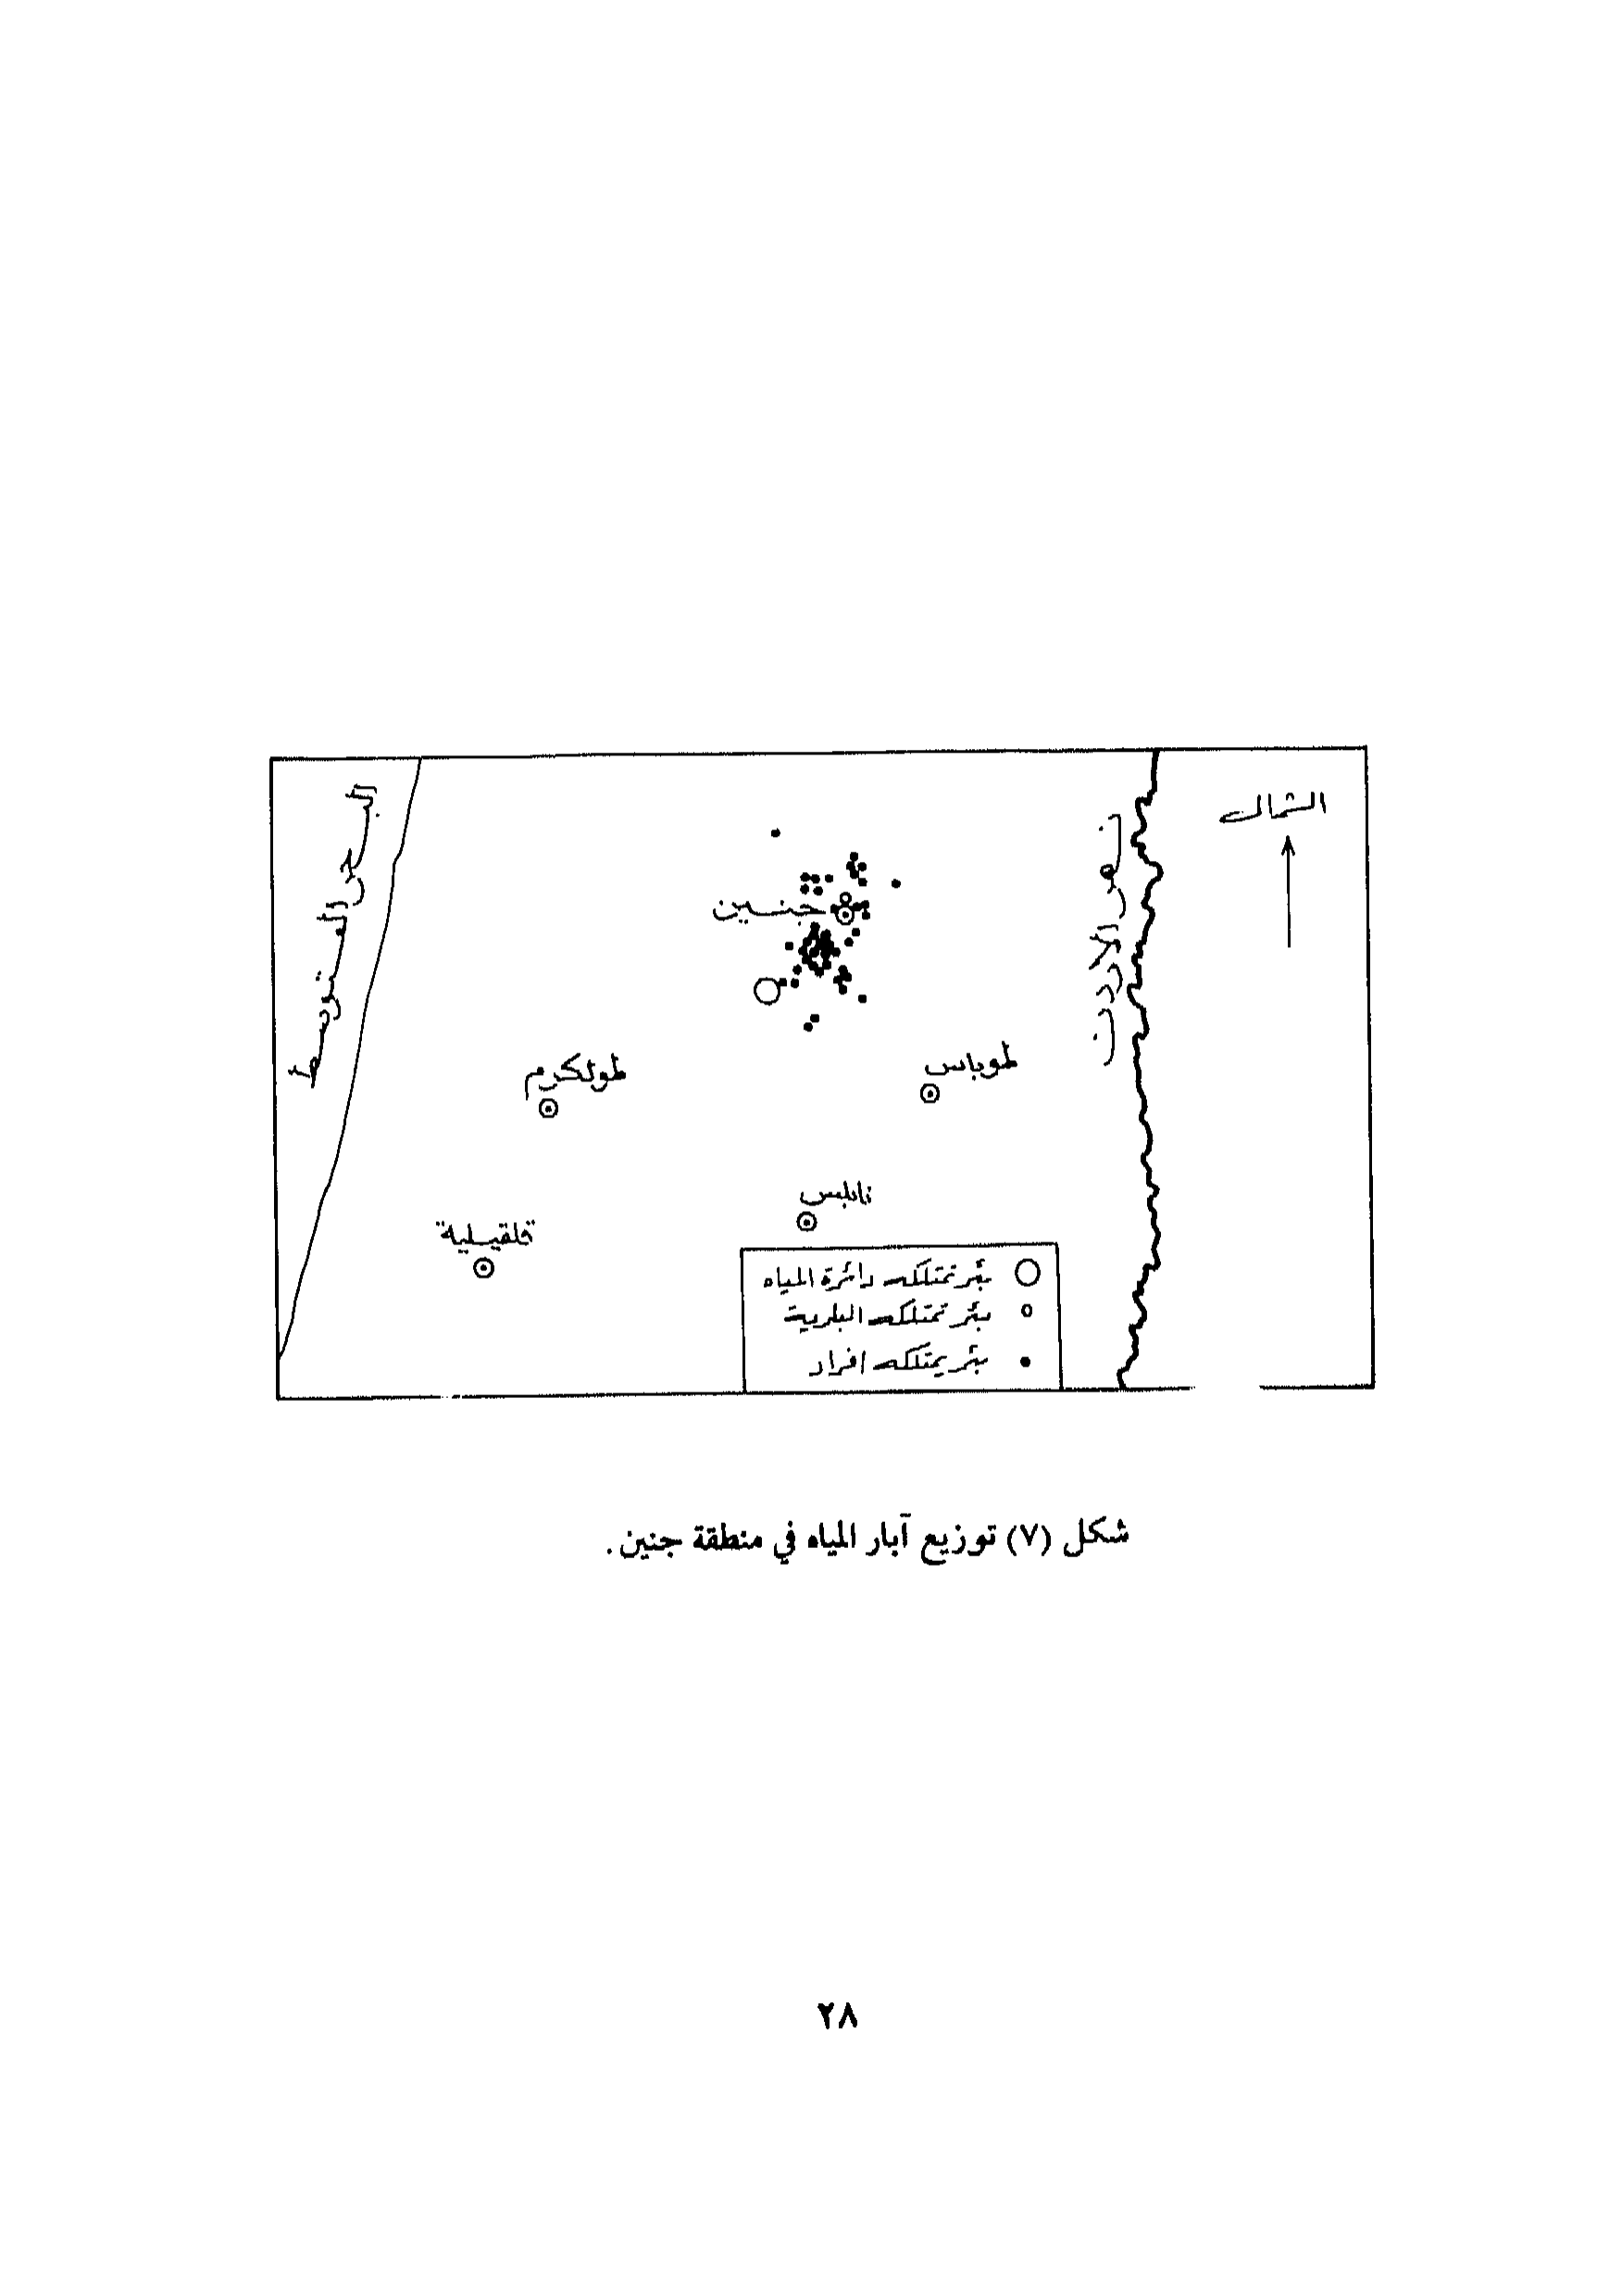 الشمال
البحر المتوسط
نهر الاردن
جنين
طولكرم
طوباس
نابلس
قلقيلية
بئر تمتلكه دائرة المياه
بئر تمتلكه البلدية
بئر يمتلكه افراد
شكل (٧) توزيع آبار المياه في منطقة جنين.
٢٨